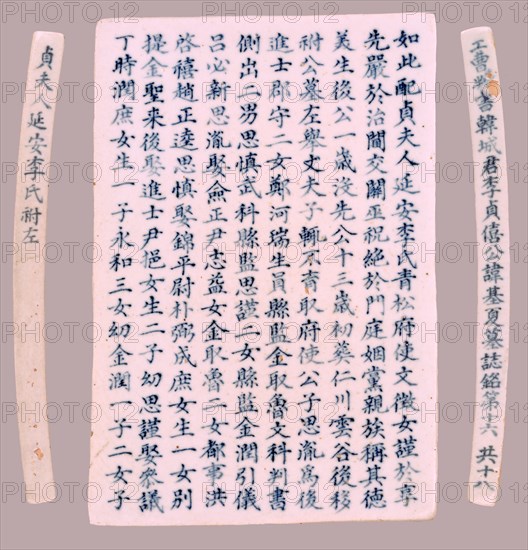 工曹判書韓城君李貞僖公諱基夏墓誌銘第十六 共十八
如此配貞夫人延安李氏青松府使文徵女謹於享
先嚴於治閫交關巫祝絶於門庭姻黨親族稱其德
美生後公一歲沒先公十三歲初葬仁川雲谷後移
祔公墓左舉丈夫子輒不育取府使公子思胤為後
進士郡守二女鄭河瑞生員縣監金取魯文科判書
側出二男思愼武科縣監思謹二女縣監金潤引儀
呂必新思胤娶僉正尹志益女金取魯二女都事洪
啓禧趙正逵思愼娶錦平尉朴弼成庶女生一女別
提金聖來後娶進士尹挹女生二子幼思謹娶參議
丁時潤庶女生一子永和三女幼金潤一子二女子
貞夫人延安李氏祔左
PHOTO12